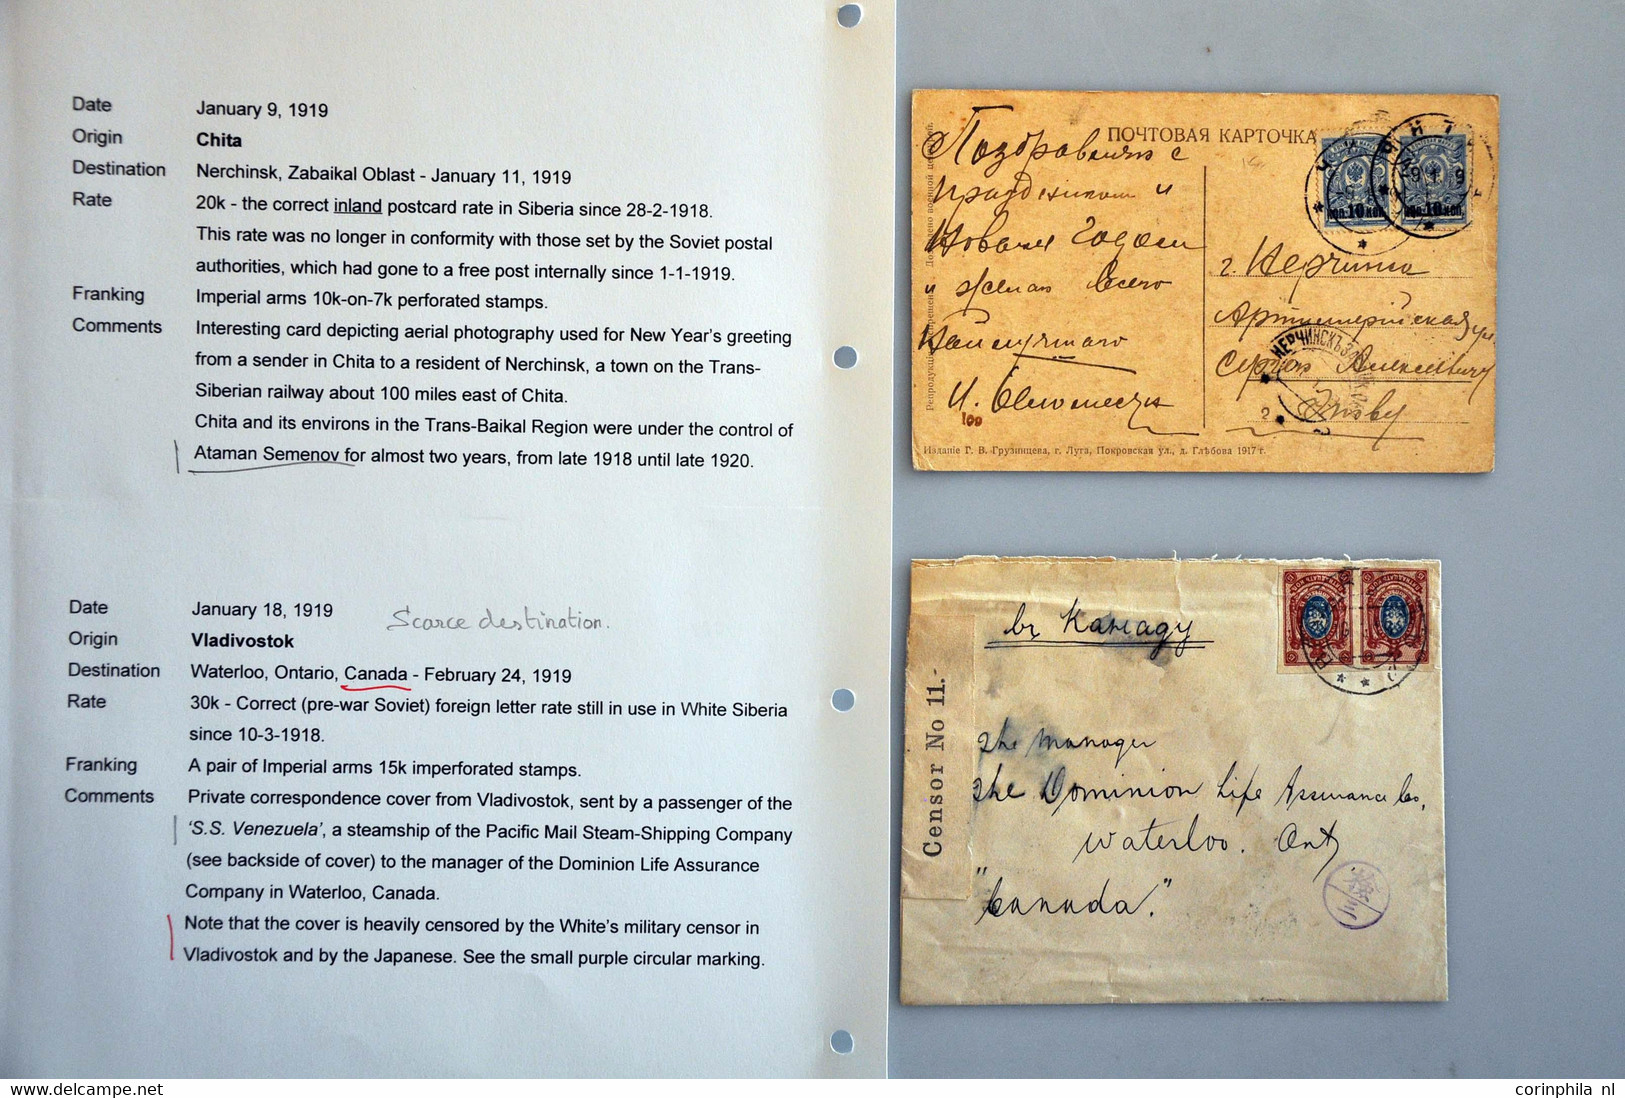 Date January 9, 1919
Origin Chita
Destination Nerchinsk, Zabaikal Oblast - January 11, 1919
Rate 20k - the correct inland postcard rate in Siberia since 28-2-1918.
This rate was no longer in conformity with those set by the Soviet postal
authorities, which had gone to a free post internally since 1-1-1919.
Franking Imperial arms 10k-on-7k perforated stamps.
Comments Interesting card depicting aerial photography used for New Year's greeting
from a sender in Chita to a resident of Nerchinsk, a town on the Trans-
Siberian railway about 100 miles east of Chita.
Chita and its environs in the Trans-Baikal Region were under the control of
Ataman Semenov for almost two years, from late 1918 until late 1920.
Date January 18, 1919
Scarce destination.
Origin Vladivostok
Destination Waterloo, Ontario, Canada - February 24, 1919
Rate 30k - Correct (pre-war Soviet) foreign letter rate still in use in White Siberia
since 10-3-1918.
Franking A pair of Imperial arms 15k imperforated stamps.
Comments Private correspondence cover from Vladivostok, sent by a passenger of the
'S.S. Venezuela', a steamship of the Pacific Mail Steam-Shipping Company
(see backside of cover) to the manager of the Dominion Life Assurance
Company in Waterloo, Canada.
Note that the cover is heavily censored by the White's military censor in
Vladivostok and by the Japanese. See the small purple circular marking.
ПОЧТОВАЯ КАРТОЧКА
Поздравляю с
праздником и
Новым Годом
и желаю всего
Наилучшаго
100
г. Нерчинск
Артиллерійская ул
Сергею Алексеевичу
НЕРЧИНСКЪ
Изданіе Г. В. Грузинцева, г. Луга, Покровская ул., д. Глѣбова 1917 г.
въ Канаду
Censor No 11.-
The Manager
The Dominion Life Assurance Co,
Waterloo. Ont
"Canada."
corinphila nl